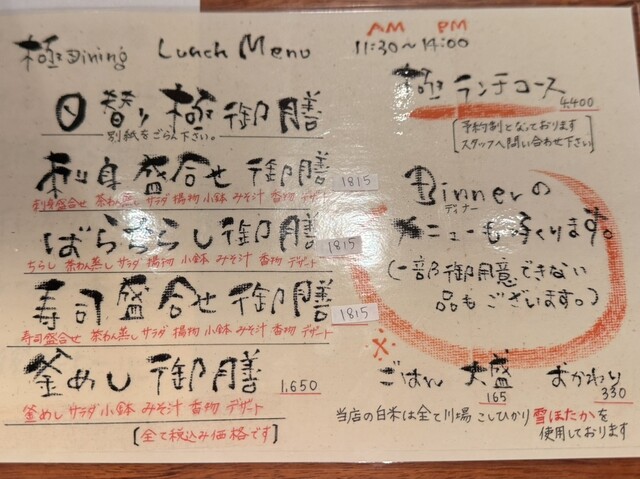 極Dining Lunch Menu
AM PM
11:30〜14:00
日替り極御膳
別紙をごらん下さい。
刺身盛合せ御膳 1815
刺身盛合せ 茶わん蒸し サラダ 揚物 小鉢 みそ汁 香物 デザート
ばらちらし御膳 1815
ちらし 茶わん蒸し サラダ 揚物 小鉢 みそ汁 香物 デザート
寿司盛合せ御膳 1815
寿司盛合せ 茶わん蒸し サラダ 揚物 小鉢 みそ汁 香物 デザート
釜めし御膳 1.650
釜めし サラダ 小鉢 みそ汁 香物 デザート
[全て税込み価格です]
極ランチコース
4.400
[予約制となっております
スタッフへ問い合わせ下さい]
Dinnerの
ディナー
メニューも承くります。
(一部御用意できない
品もございます。)
※ごはん 大盛 おかわり
165 330
当店の白米は全て川場こしひかり雪ほたかを
使用しております